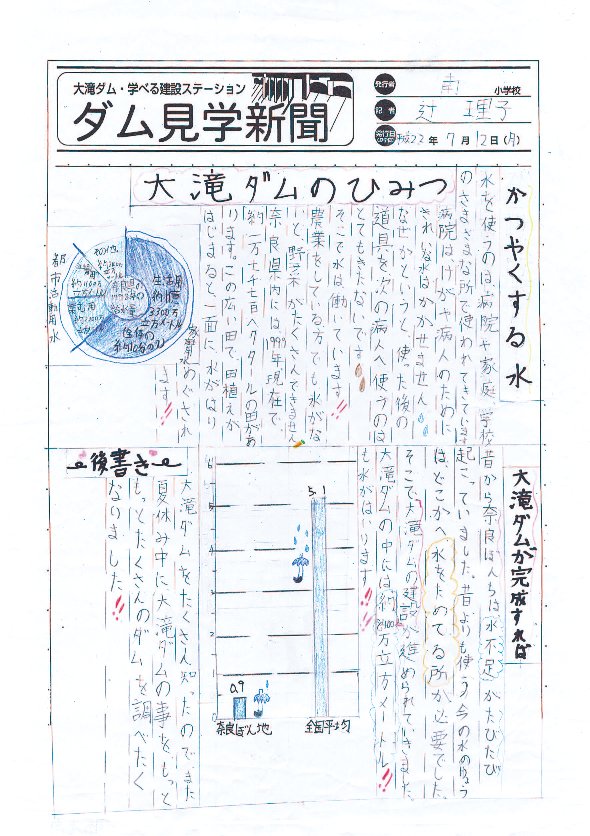 大滝ダム・学べる建設ステーション
ダム見学新聞
発行者 南 小学校
記者 辻 理子
発行日 平成22年7月12日(月)
大滝ダムのひみつ
かつやくする水
水を使うのは病院や家庭、学校
のさまざまな所で使われてきています
病院はけがや病人のために
きれいな水はかかせません
なぜかというと、使った後の
道具を次の病人へ使うのは
とてもきたないです
そこで水は働いています!!
農業をしている方でも水がな
いと、野菜がたくさんできません
奈良県内には1999年現在で、
約一万七千七百ヘクタールの田があ
ります。この広い田で、田植えが
はじまると、一面に水がはり
めぐされ
ます!!
都市活動用水
その他
生活用
約1億3300万
立方メートル
奈良県の
1998年の
農業用水
大滝ダムが完成すれば
昔から奈良ぼんちは水不足がたびたび
起こっていました。昔よりも使う今の水のりょう
は、どこかへ水をためてる所が必要でした。
そこで大滝ダムの建設が進められていきました。
大滝ダムの中には約8400万立方メートル
も水がはいります!!
6
5
4
3
2
1
0
5.1
0.9
奈良ぼん地
全国平均
後書き
大滝ダムをたくさん知ったので、また
夏休み中に大滝ダムの事をもっと
もっとたくさんのダムを調べたく
なりました!!